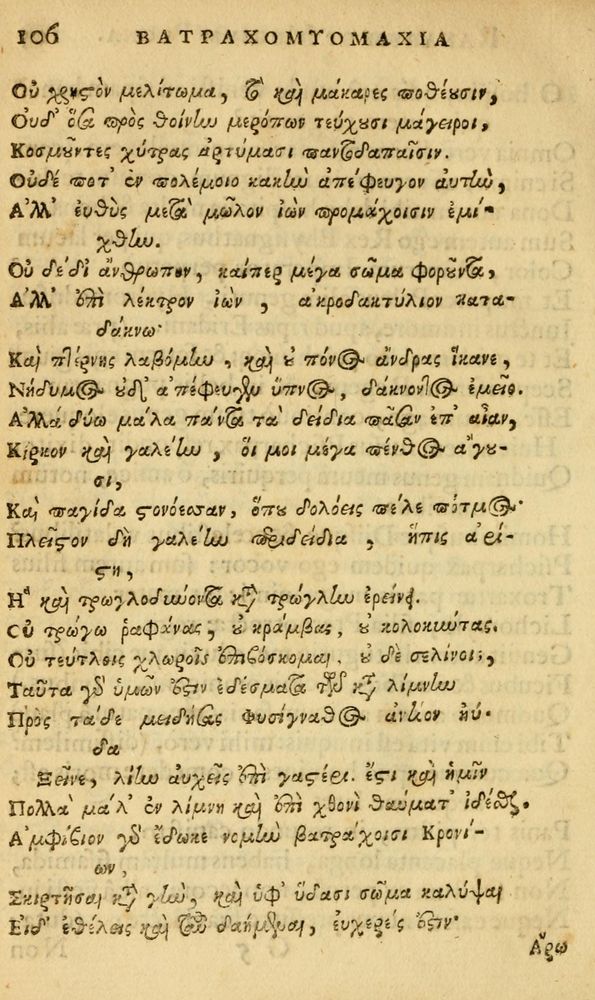 106 ΒΑΤΡΑΧΟΜΥΟΜΑΧΙΑ
Οὐ χρηστὸν μελίτωμα, τὸ καὶ μάκαρες ποθέουσιν,
Οὐδ' ὅσα πρὸς θοίνην μερόπων τεύχουσι μάγειροι,
Κοσμοῦντες χύτρας ἀρτύμασι παντοδαπαῖσιν.
Οὐδέ ποτ' ἐν πολέμοιο κακὴν ἀπέφευγον ἀυτὴν,
Ἀλλ' εὐθὺς μετὰ μῶλον ἰὼν προμάχοισιν ἐμί-
χθην.
Οὐ δέδι ἄνθρωπον, καίπερ μέγα σῶμα φοροῦντα,
Ἀλλ' ἐπὶ λέκτρον ἰὼν, ἀκροδακτύλιον κατα-
δάκνω·
Καὶ πτέρνης λαβόμην, καὶ οὐ πόνος ἄνδρας ἵκανε,
Νήδυμος οὐδ' ἀπέφευγεν ὕπνος, δάκνοντος ἐμεῖο.
Ἀλλὰ δύω μάλα πάντα τὰ δείδια πᾶσαν ἐπ' αἶαν,
Κίρκον καὶ γαλέην, οἵ μοι μέγα πένθος ἄγου-
σι,
Καὶ παγίδα στονόεσσαν, ὅπου δολόεις πέλε πότμος·
Πλεῖστον δὴ γαλέην περιδείδια, ἥτις ἀρί-
στη,
Ἣ καὶ τρωγλοδύοντα κατὰ τρώγλην ἐρείνει.
Οὐ τρώγω ῥαφάνας, οὐ κράμβας, οὐ κολοκύντας.
Οὐ τεύτλοις χλωροῖς ἐπιβόσκομαι, οὐ δὲ σελίνοις,
Ταῦτα γὰρ ὑμῶν ἐστὶν ἐδέσματα τῶν κατὰ λίμνην
Πρὸς τάδε μειδήσας Φυσίγναθος ἀντίον ηὔ-
δα
Ξεῖνε, λίην αὐχεῖς ἐπὶ γαστέρι. ἔστι καὶ ἡμῖν
Πολλὰ μάλ' ἐν λίμνῃ καὶ ἐπὶ χθονὶ θαύματ' ἰδέσθαι.
Ἀμφίβιον γὰρ ἔδωκε νομὴν βατράχοισι Κρονί-
ων,
Σκιρτῆσαι κατὰ γῆν, καὶ ὑφ' ὕδασι σῶμα καλύψαι
Εἰδ' ἐθέλεις καὶ ταῦτα δαήμεναι, εὐχερές ἐστιν·
Ἄρω